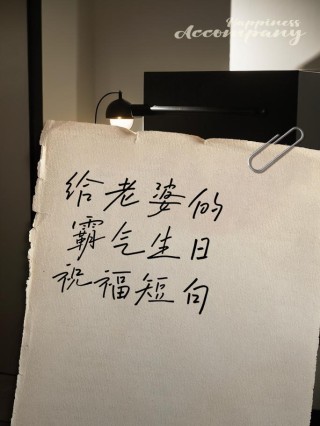 Happiness
Accompany
给老婆的
霸气生日
祝福短句